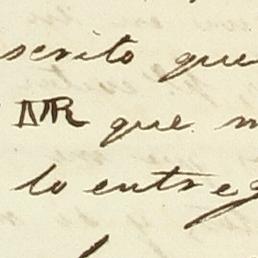 scrito que
que
lo entreg